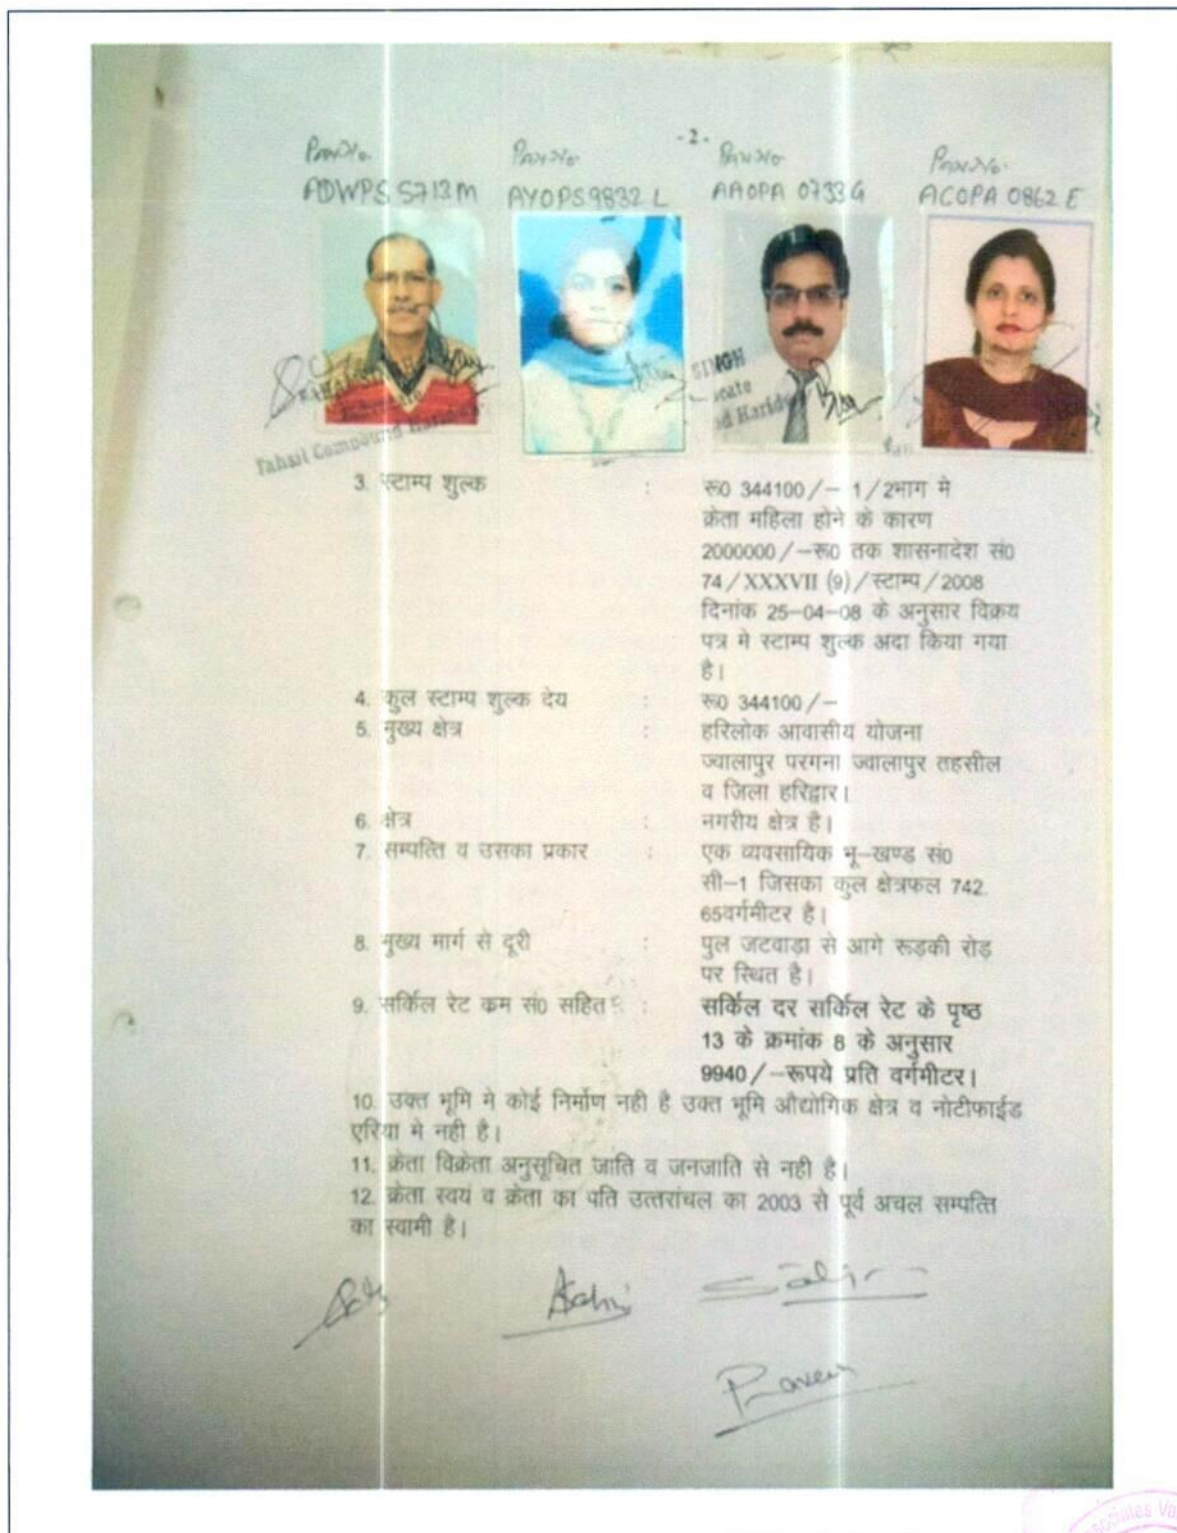 -2-
Pan No. Pan No Pan No Pan No.
ADWPS 5713M AYOPS9832 L AAOPA 0733G ACOPA 0862 E
SINGH
Tahsil Compound
3. स्टाम्प शुल्क : रू0 344100/- 1/2भाग मे
क्रेता महिला होने के कारण
2000000/-रू0 तक शासनादेश सं0
74/XXXVII (9)/स्टाम्प/2008
दिनांक 25-04-08 के अनुसार विक्रय
पत्र मे स्टाम्प शुल्क अदा किया गया
है।
4. कुल स्टाम्प शुल्क देय : रू0 344100/-
5. मुख्य क्षेत्र : हरिलोक आवासीय योजना
ज्वालापुर परगना ज्वालापुर तहसील
व जिला हरिद्वार।
6. क्षेत्र : नगरीय क्षेत्र है।
7. सम्पत्ति व उसका प्रकार : एक व्यवसायिक भू-खण्ड सं0
सी-1 जिसका कुल क्षेत्रफल 742.
65वर्गमीटर है।
8. मुख्य मार्ग से दूरी : पुल जटवाड़ा से आगे रूड़की रोड़
पर स्थित है।
9. सर्किल रेट कम सं0 सहित : सर्किल दर सर्किल रेट के पृष्ठ
13 के क्रमांक 8 के अनुसार
9940/-रूपये प्रति वर्गमीटर।
10. उक्त भूमि मे कोई निर्माण नही है उक्त भूमि औद्योगिक क्षेत्र व नोटीफाईड
एरिया मे नही है।
11. क्रेता विक्रेता अनुसूचित जाति व जनजाति से नही है।
12. क्रेता स्वयं व क्रेता का पति उत्तरांचल का 2003 से पूर्व अचल सम्पत्ति
का स्वामी है।
Praveen